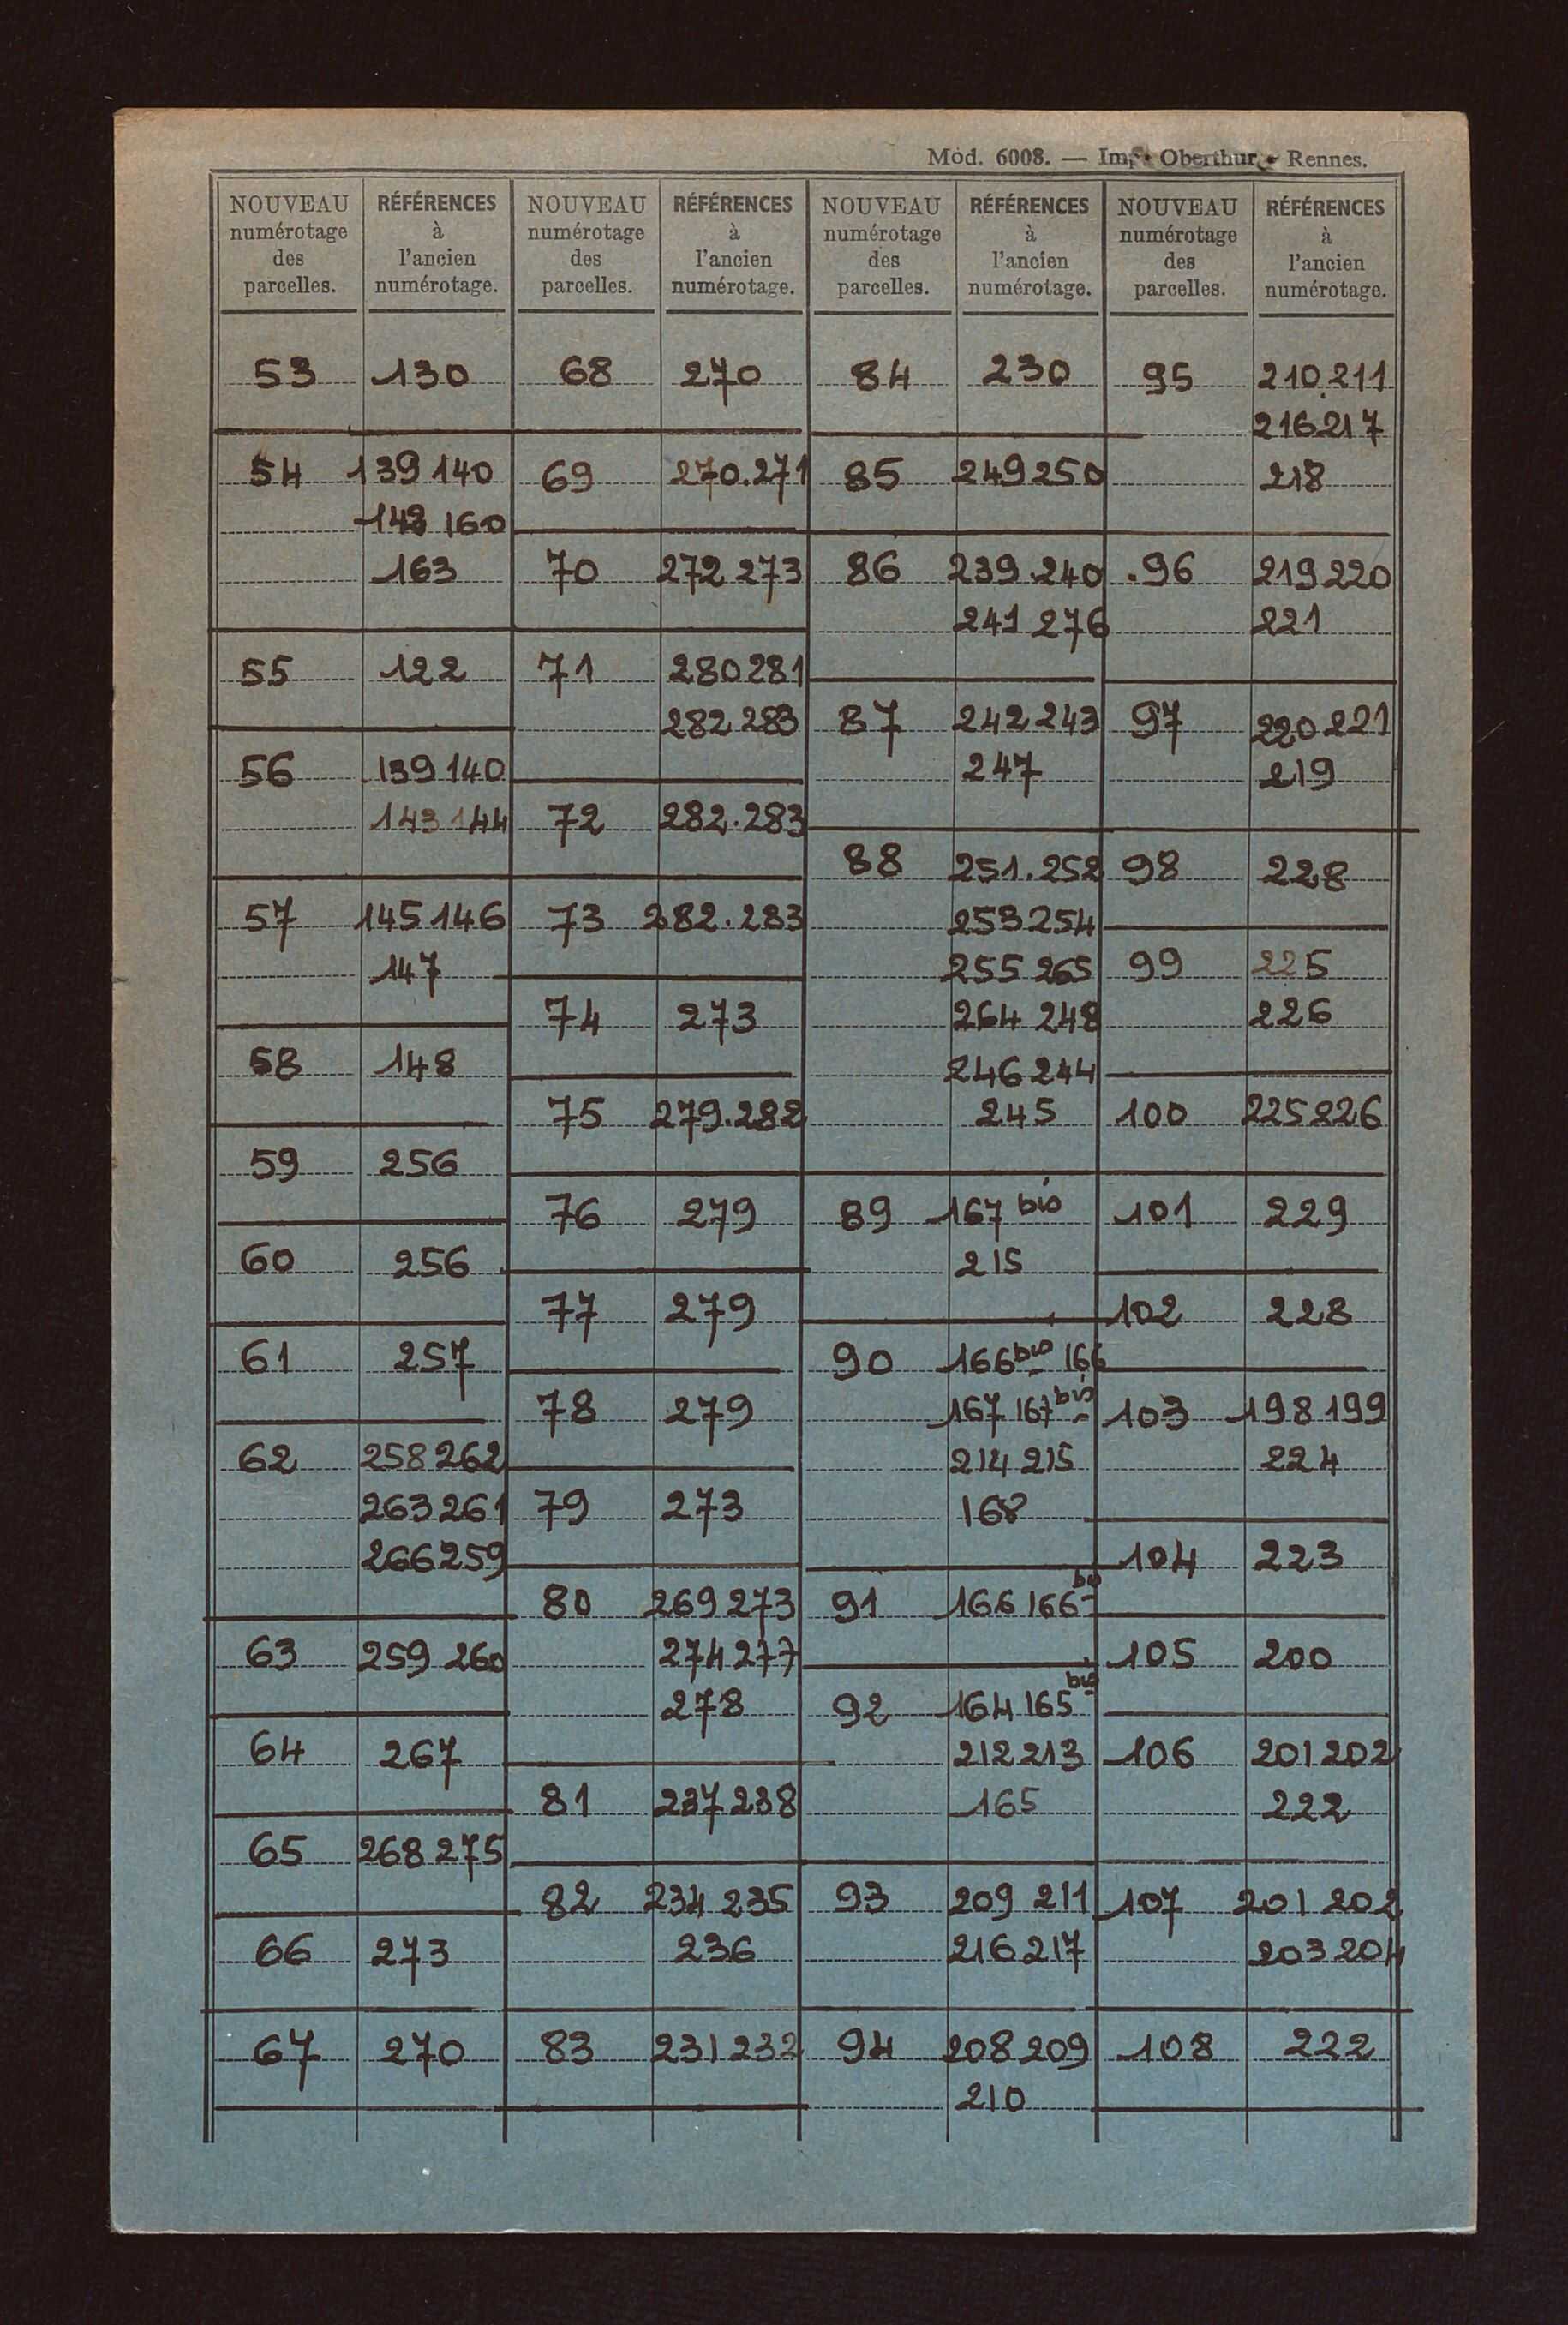 Mod. 6008. — Imp. Oberthur - Rennes.
NOUVEAU numérotage des parcelles. RÉFÉRENCES à l'ancien numérotage.
53 130
54 139 140
160
163
55 122
56 139 140
143 144
57 145 146
147
58 148
59 256
60 256
61 257
62 258 262
263 261
266 259
63 259 260
64 267
65 268 275
66 273
67 270
NOUVEAU numérotage des parcelles. RÉFÉRENCES à l'ancien numérotage.
68 270
69 270.271
70 272 273
71 280 281
282 283
72 282.283
73 282.283
74 273
75 279.282
76 279
77 279
78 279
79 273
80 269 273
274 277
278
81 237 238
82 234 235
236
83 231 232
NOUVEAU numérotage des parcelles. RÉFÉRENCES à l'ancien numérotage.
84 230
85 249 250
86 239.240
241 276
87 242 243
247
88 251.252
253 254
255 265
264 248
246 244
245
89 167 bis
215
90 166 bis 166
167 167 bis
214 215
168
91 166 166 bis
92 164 165 bis
212 213
165
93 209 211
216 217
94 208 209
210
NOUVEAU numérotage des parcelles. RÉFÉRENCES à l'ancien numérotage.
95 210.211
216 217
218
96 219 220
221
97 220 221
219
98 228
99 225
226
100 225 226
101 229
102 228
103 198 199
224
104 223
105 200
106 201 202
222
107 201 202
203 204
108 222